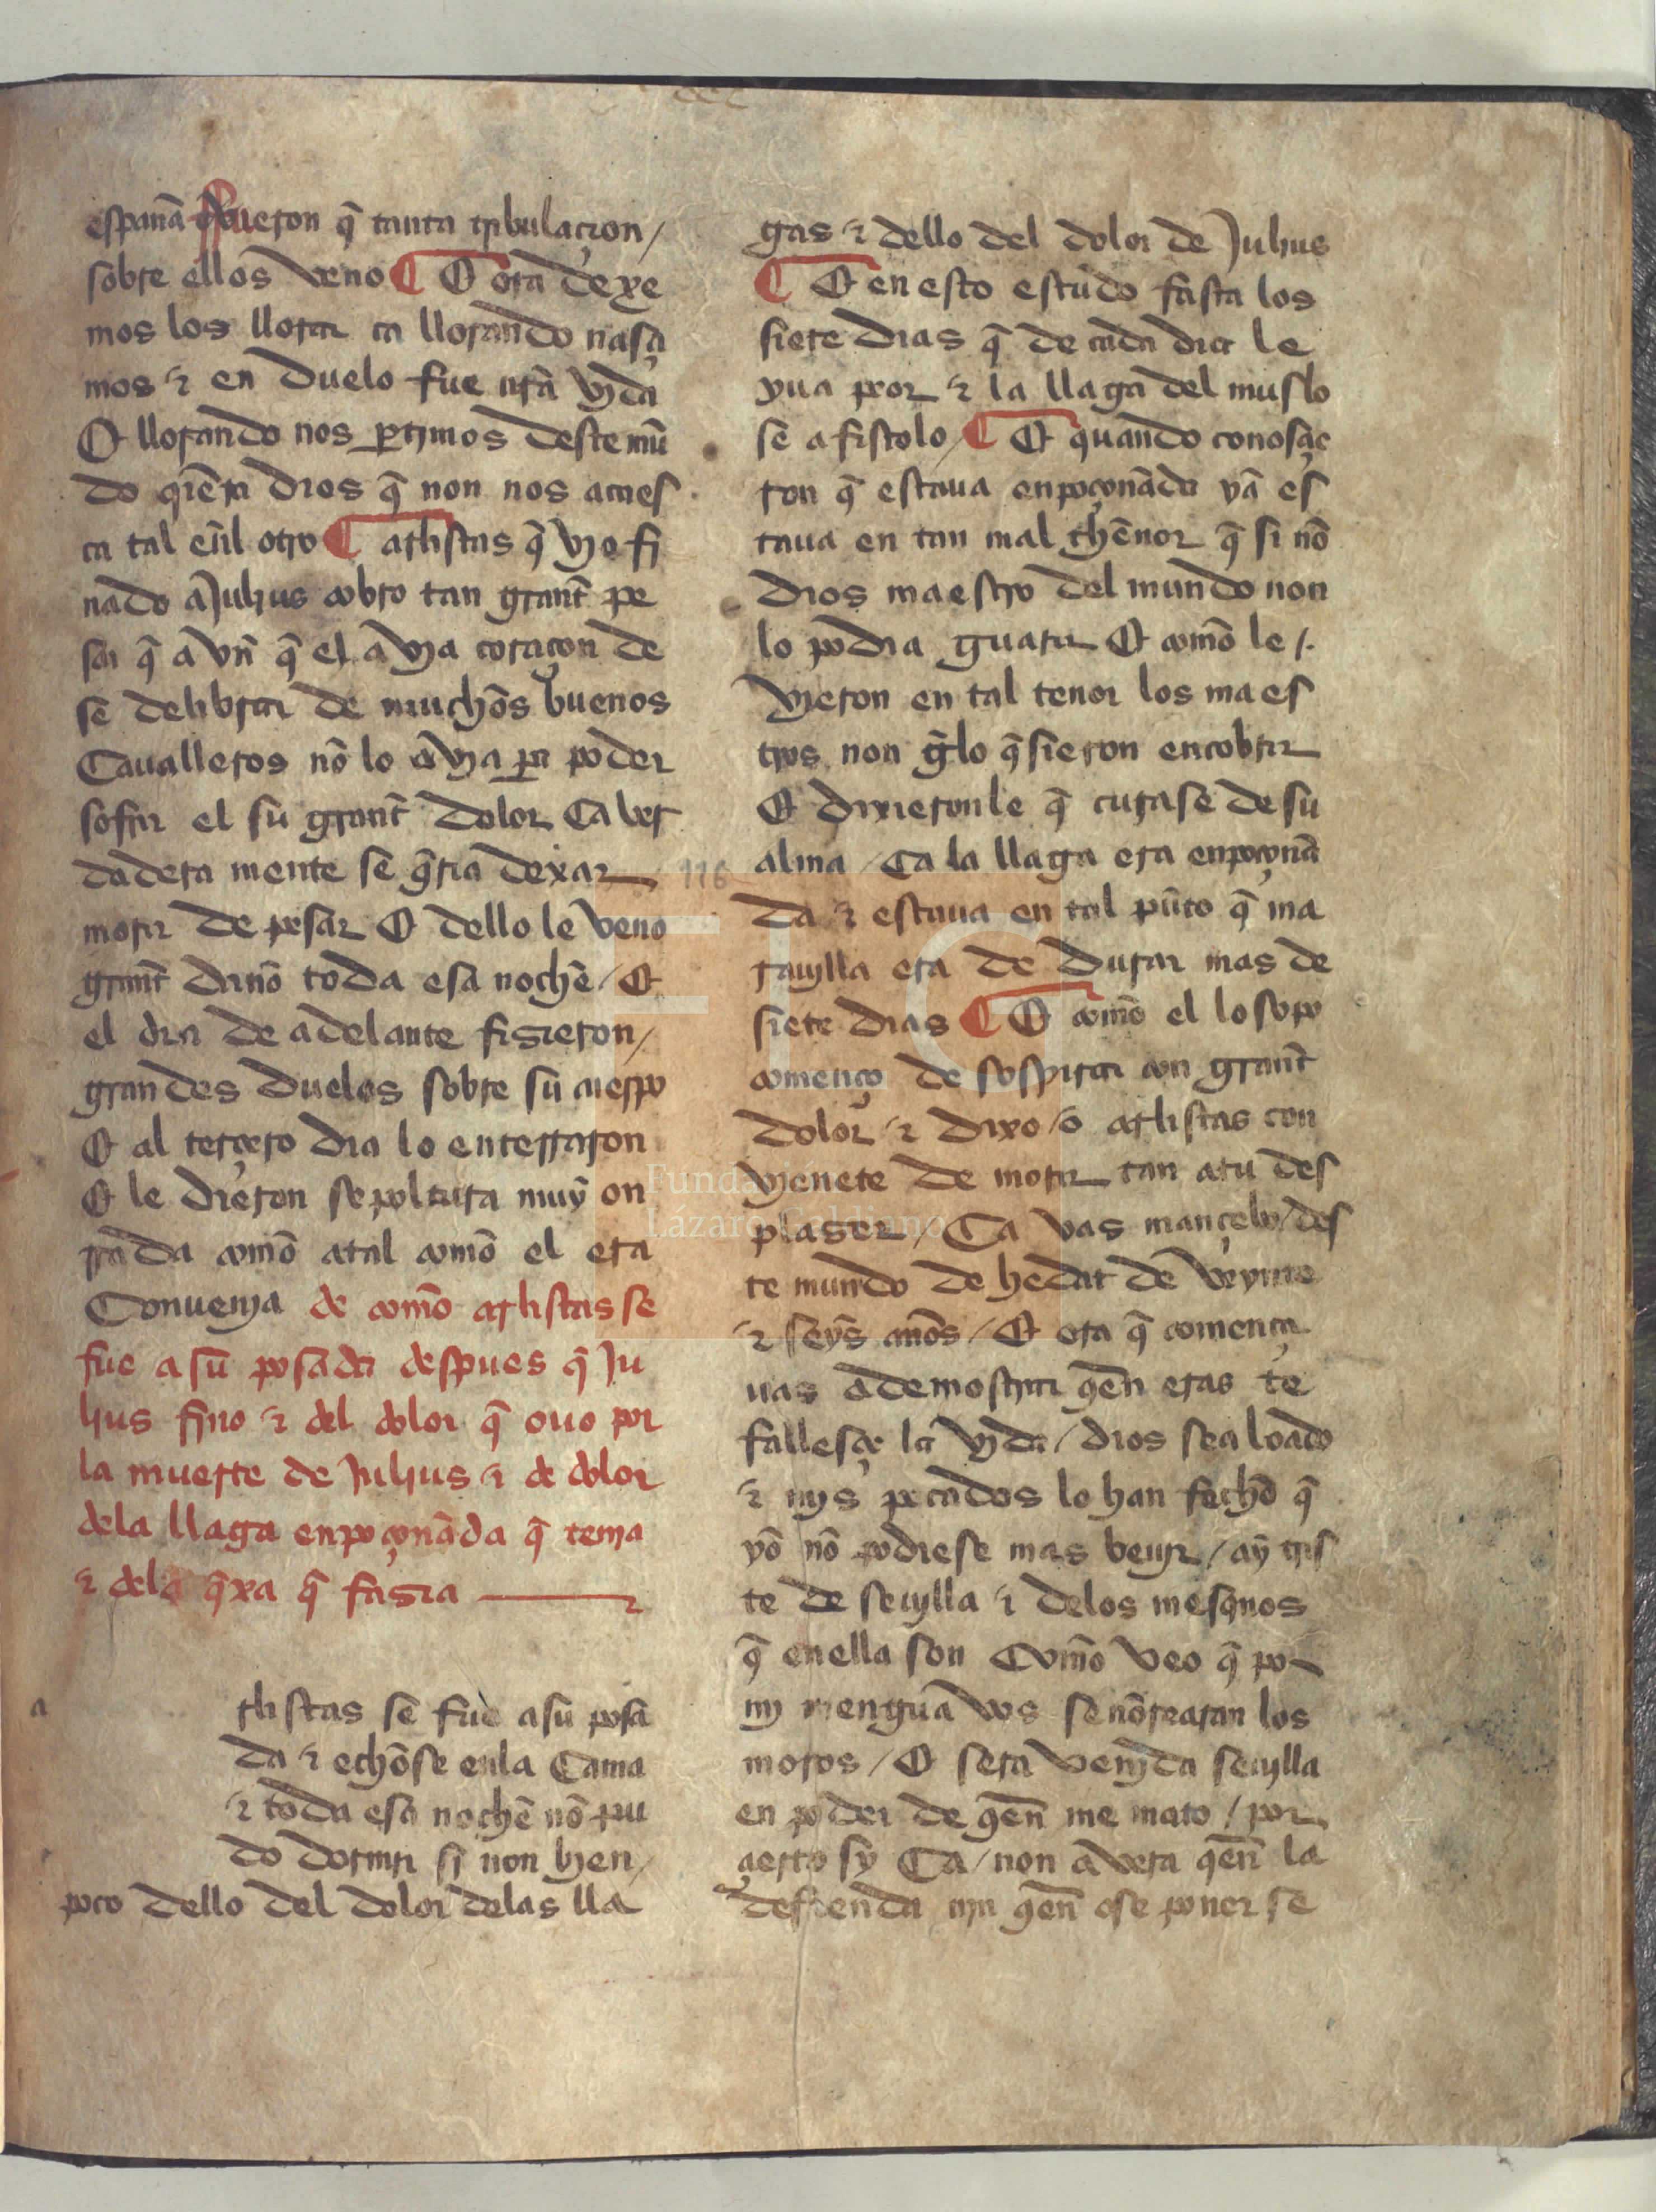 españa fizieron q̃ tanta tribulaçion /
sobre ellos veno ¶ E ora dexe
mos los llorar ca llorando nasçi
mos ⁊ en duelo fue nr̃a vida
E llorando nos ꝑtimos deste mũ
do q̃era dios q̃ non nos acaes
ca tal eñl otro ¶ arlistas q̃ vio fi
nado a Julius cobro tan grant̃ pe
sar q̃ a vn̄ q̃ el avia coraçon de
se delibrar de muchos buenos
Caualleros nõ lo avia ꝑa poder
sofrir el su grant̃ dolor Ca ver
dadera mente se q̃ria dexar
morir de pesar E dello le veno
grant̃ dãno toda esa noche / E
el dia de adelante fisieron /
grandes duelos sobre su cuerpo
E al terçero dia lo enterraron
E le dieron sepoltura muỹ on
rrada comõ atal comõ el era
Conuenia de comõ arlistas se
fue a su posada despues q̃ Ju
lius fino ⁊ del dolor q̃ ouo por
la muerte de Julius ⁊ de dolor
dela llaga enpoçonãda q̃ tenia
⁊ dela q̃xa q̃ fasia
a
rlistas se fue a su posa
da ⁊ echose enla Cama
⁊ toda esa noche nõ pu
do dormir si non bien /
poco dello del dolor delas lla
gas ⁊ dello del dolor de Julius
¶ E en esto estudo fasta los
siete dias q̃ de cada dia le
yua peor ⁊ la llaga del muslo
se afistolo / ¶ E quando conosçie
ron q̃ estaua enpoçonãda yã es
taua en tan mal thenor q̃ si nõ
dios maestro del mundo non
lo podia guarir E comõ le
vieron en tal tenor los maes
tros non gẽlo q̃sieron encobrir
E dixieronle q̃ curase de su
alma / Ca la llaga era enpoçonã
da ⁊ estaua en tal pũto q̃ ma
rauylla era de durar mas de
116
siete dias ¶ E comõ el lo sopo
començo de sospirar con grant̃
dolor ⁊ dixo / o arlistas con
vienete de morir tan atu des
plaser / Ca vas mançebo / des
te mundo de hedat de veynte
⁊ seys anõs / E ora q̃ comença
uas ademostrar q̃en eras te
fallesçe la vida / dios sea loado
⁊ mis pecados lo han fecho q̃
yõ nõ podiese mas beuir / aỹ tris
te de seuylla ⁊ delos mesq̃nos
q̃ enella son Comõ veo q̃ po
mi mengua vos señorearan los
moros / E sera venida seuylla
en poder de q̃en me mato / por
çierto sy Ca / non avera q̃en la
defienda nin q̃en ose poner se
Fundación
Lázaro Galdiano
FLG